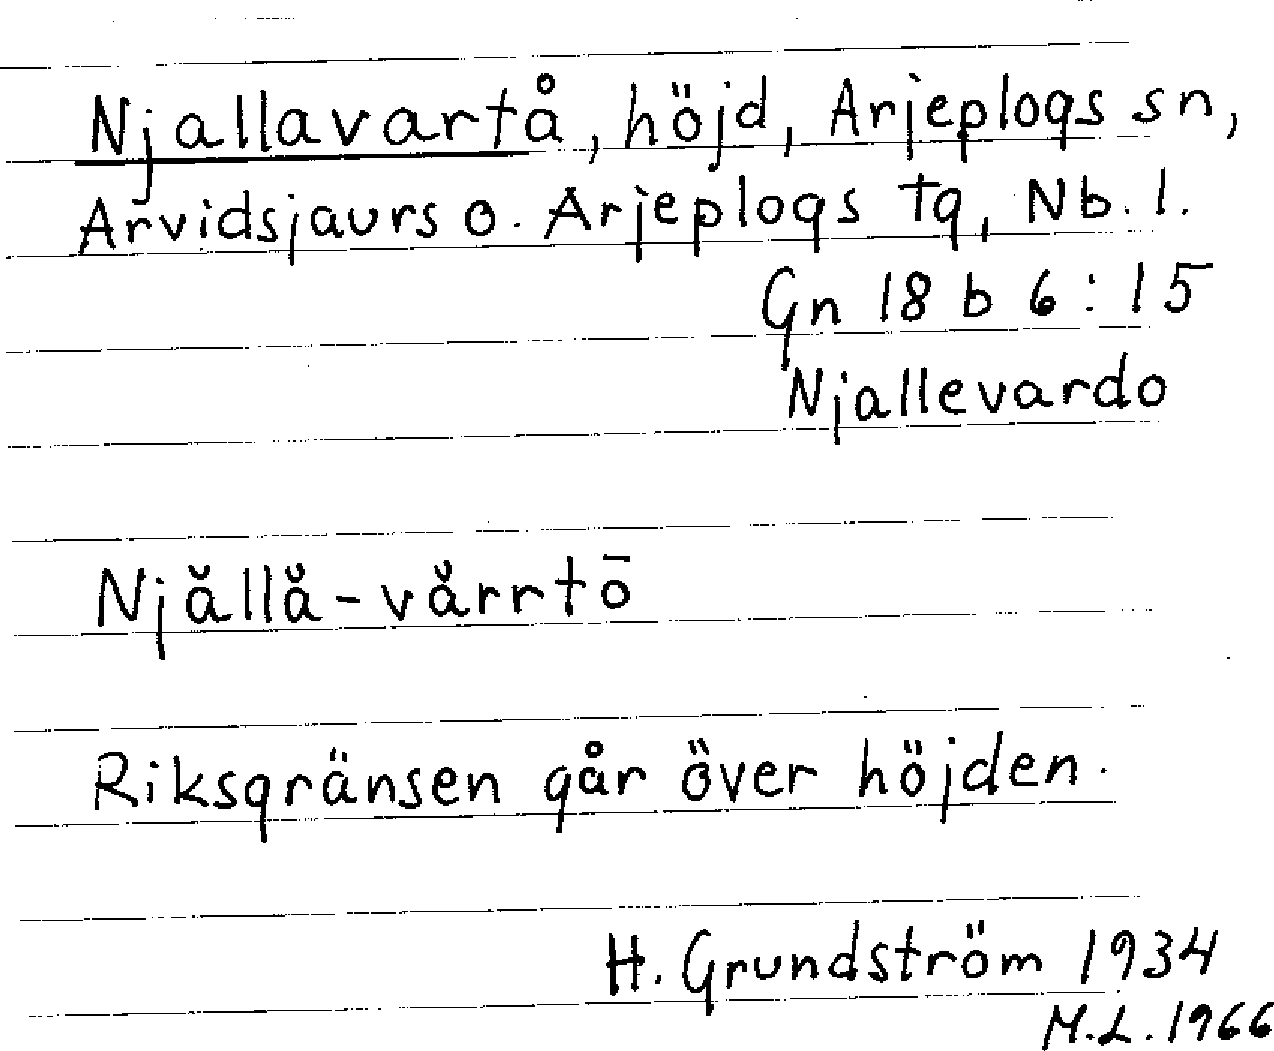 Njallavartå, höjd, Arjeplogs sn,
Arvidsjaurs o. Arjeplogs tg, Nb. l.
Gn 18 b 6 : 15
Njallevardo
Njăllă - vărrtō
Riksgränsen går över höjden.
H. Grundström 1934
M.L. 1966